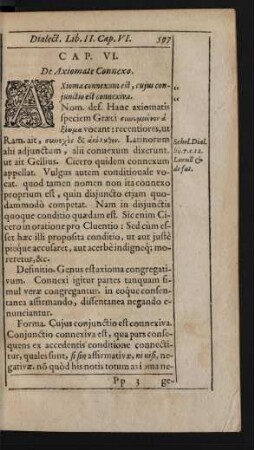 Dialect. Lib. II. Cap. VI. 597
CAP. VI.
De Axiomate Connexo.
AXioma connexum est, cujus con-
junctio est connexiva.
Nom. def. Hanc axiomatis
speciem Græci συνημμένον ἀ-
ξίωμα vocant: recentiores, ut
Ram. ait, συνεχὲς & Latinorum
alii adjunctum, alii connexum dixerunt.
ut ait Gellius. Cicero quidem connexum
appellat. Vulgus autem conditionale vo-
cat. quod tamen nomen non ita connexo
proprium est, quin disjuncto etjam quo-
dammodò competat. Nam in disjunctis
quoque conditio quædam est. Sic enim Ci-
cero in oratione pro Cluentio: Sed cùm es-
set hæc illi proposita conditio, ut aut justè
piéque accusaret, aut acerbè indigneq; mo-
reretur, &c.
Definitio. Genus est axioma congregati-
vum. Connexi igitur partes tanquam si-
mul veræ congregantur. in eoque consen-
tanea affirmando, dissentanea negando e-
nunciantur.
Forma. Cujus conjunctio est connexiva.
Conjunctio connexiva est, qua pars conse-
quens ex accedentis conditione connecti-
tur, quales sunt, si sin affirmativæ, ni nisi, ne-
gativæ. nō quòd his notis totum axioma ne-
Pp 3 ge-
Schol. Dial.
&
de fat.